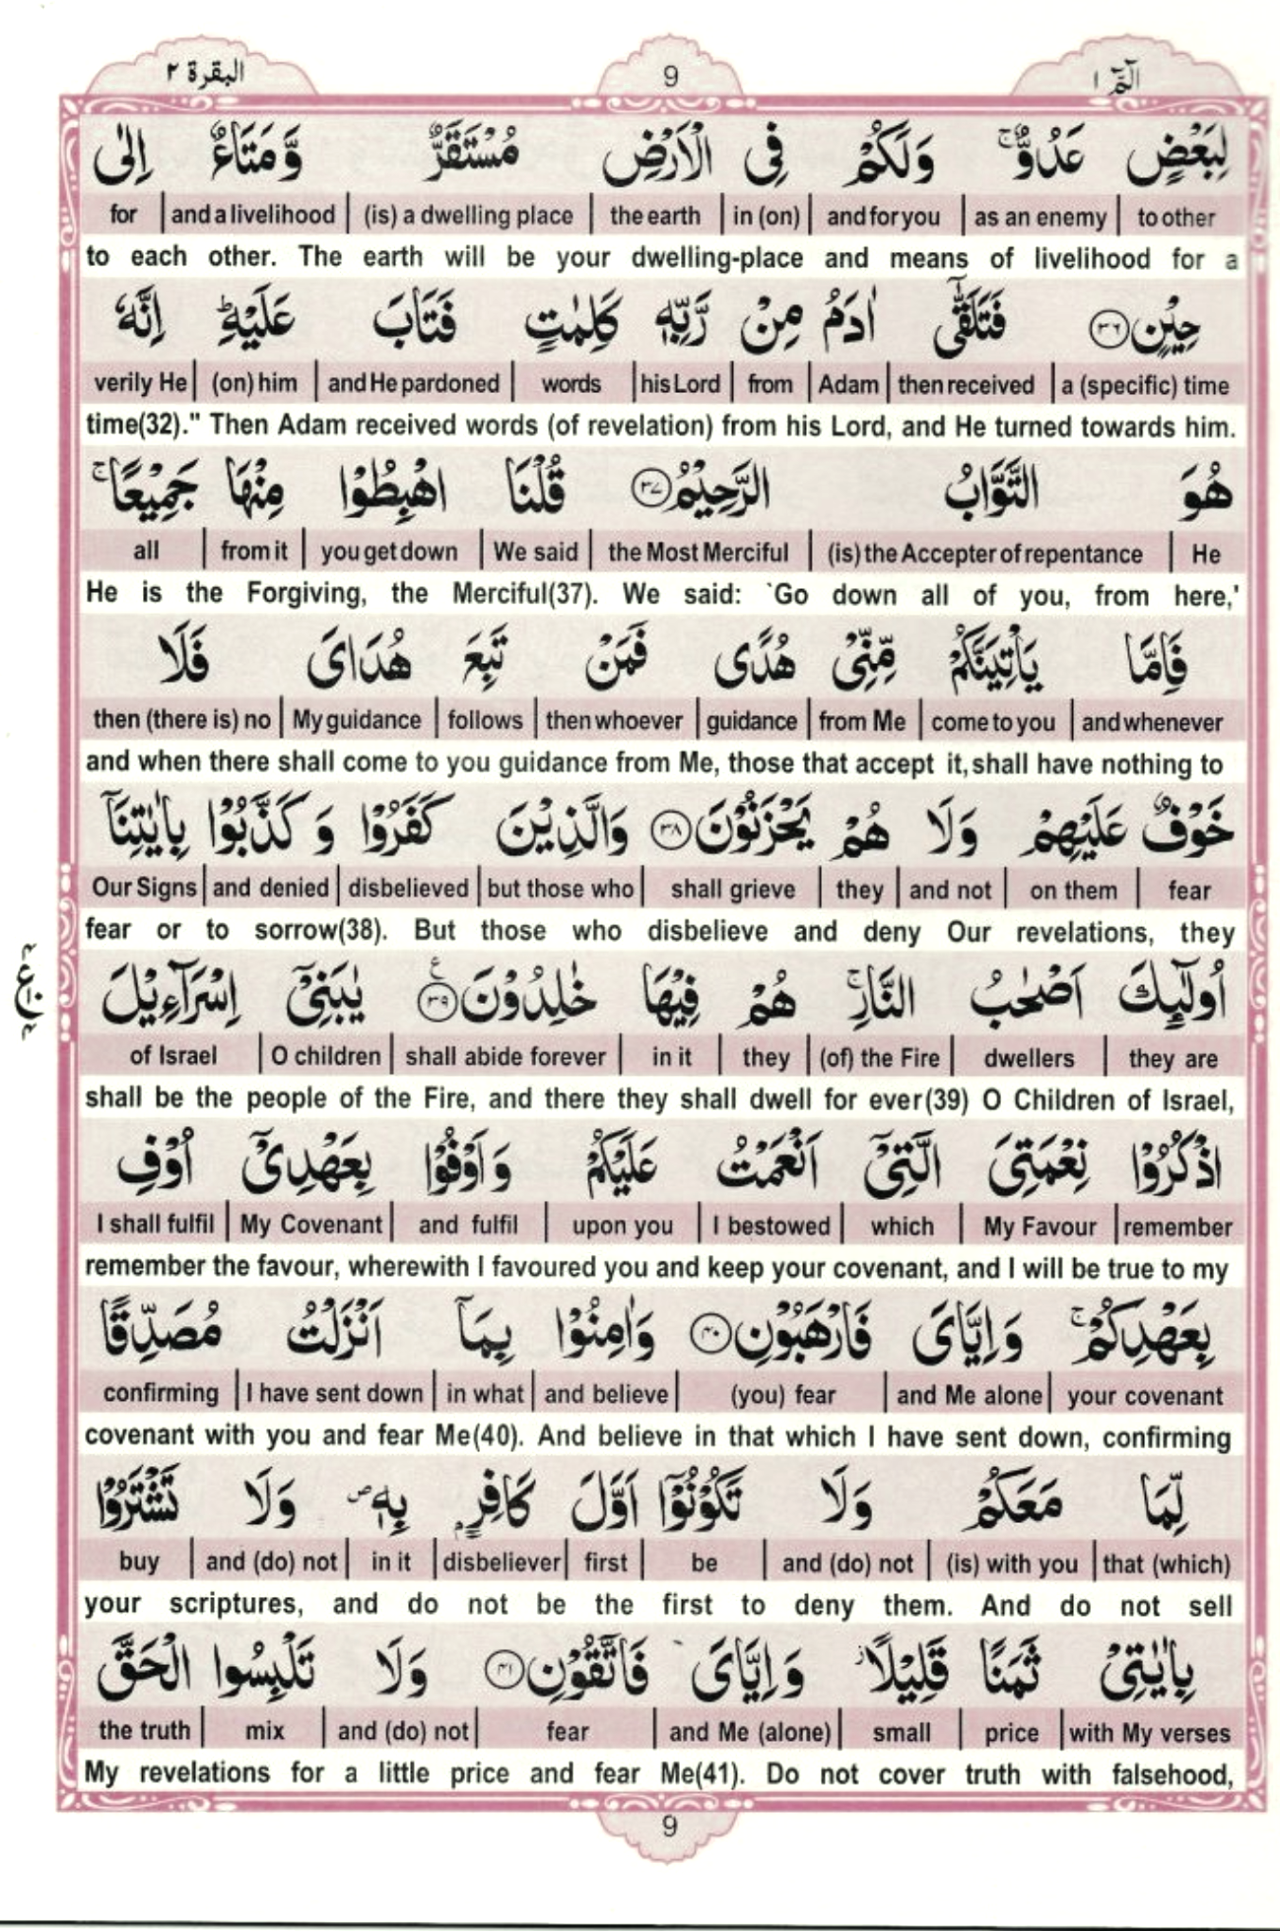 الٓمّٓ ١
9
البقرة ٢
لِبَعْضٍ عَدُوٌّ ۚ وَلَكُمْ فِى الْاَرْضِ مُسْتَقَرٌّ وَّمَتَاعٌ اِلٰى
to other | as an enemy | and for you | in (on) | the earth | (is) a dwelling place | and a livelihood | for
to each other. The earth will be your dwelling-place and means of livelihood for a
حِيْنٍ ﴿٣٦﴾ فَتَلَقّٰٓى اٰدَمُ مِنْ رَّبِّهٖ كَلِمٰتٍ فَتَابَ عَلَيْهِ ؕ اِنَّهٗ
a (specific) time | then received | Adam | from | his Lord | words | and He pardoned | (on) him | verily He
time(32)." Then Adam received words (of revelation) from his Lord, and He turned towards him.
هُوَ التَّوَّابُ الرَّحِيْمُ ﴿٣٧﴾ قُلْنَا اهْبِطُوْا مِنْهَا جَمِيْعًا ۚ
He | (is) the Accepter of repentance | the Most Merciful | We said | you get down | from it | all
He is the Forgiving, the Merciful(37). We said: `Go down all of you, from here,'
فَاِمَّا يَاْتِيَنَّكُمْ مِّنِّىْ هُدًى فَمَنْ تَبِعَ هُدَاىَ فَلَا
and whenever | come to you | from Me | guidance | then whoever | follows | My guidance | then (there is) no
and when there shall come to you guidance from Me, those that accept it, shall have nothing to
خَوْفٌ عَلَيْهِمْ وَلَا هُمْ يَحْزَنُوْنَ ﴿٣٨﴾ وَالَّذِيْنَ كَفَرُوْا وَكَذَّبُوْا بِاٰيٰتِنَآ
fear | on them | and not | they | shall grieve | but those who | disbelieved | and denied | Our Signs
fear or to sorrow(38). But those who disbelieve and deny Our revelations, they
اُولٰٓئِكَ اَصْحٰبُ النَّارِ ۚ هُمْ فِيْهَا خٰلِدُوْنَ ﴿٣٩﴾ ع يٰبَنِىْٓ اِسْرَآءِيْلَ
they are | dwellers | (of) the Fire | they | in it | shall abide forever | O children | of Israel
shall be the people of the Fire, and there they shall dwell for ever(39) O Children of Israel,
اذْكُرُوْا نِعْمَتِىَ الَّتِىْٓ اَنْعَمْتُ عَلَيْكُمْ وَاَوْفُوْا بِعَهْدِىْٓ اُوْفِ
remember | My Favour | which | I bestowed | upon you | and fulfil | My Covenant | I shall fulfil
remember the favour, wherewith I favoured you and keep your covenant, and I will be true to my
بِعَهْدِكُمْ ۚ وَاِيَّاىَ فَارْهَبُوْنِ ﴿٤٠﴾ وَاٰمِنُوْا بِمَآ اَنْزَلْتُ مُصَدِّقًا
your covenant | and Me alone | (you) fear | and believe | in what | I have sent down | confirming
covenant with you and fear Me(40). And believe in that which I have sent down, confirming
لِّمَا مَعَكُمْ وَلَا تَكُوْنُوْٓا اَوَّلَ كَافِرٍۭ بِهٖ ۪ وَلَا تَشْتَرُوْا
that (which) | (is) with you | and (do) not | be | first | disbeliever | in it | and (do) not | buy
your scriptures, and do not be the first to deny them. And do not sell
بِاٰيٰتِىْ ثَمَنًا قَلِيْلًا ؗ وَاِيَّاىَ فَاتَّقُوْنِ ﴿٤١﴾ وَلَا تَلْبِسُوا الْحَقَّ
with My verses | price | small | and Me (alone) | fear | and (do) not | mix | the truth
My revelations for a little price and fear Me(41). Do not cover truth with falsehood,
9